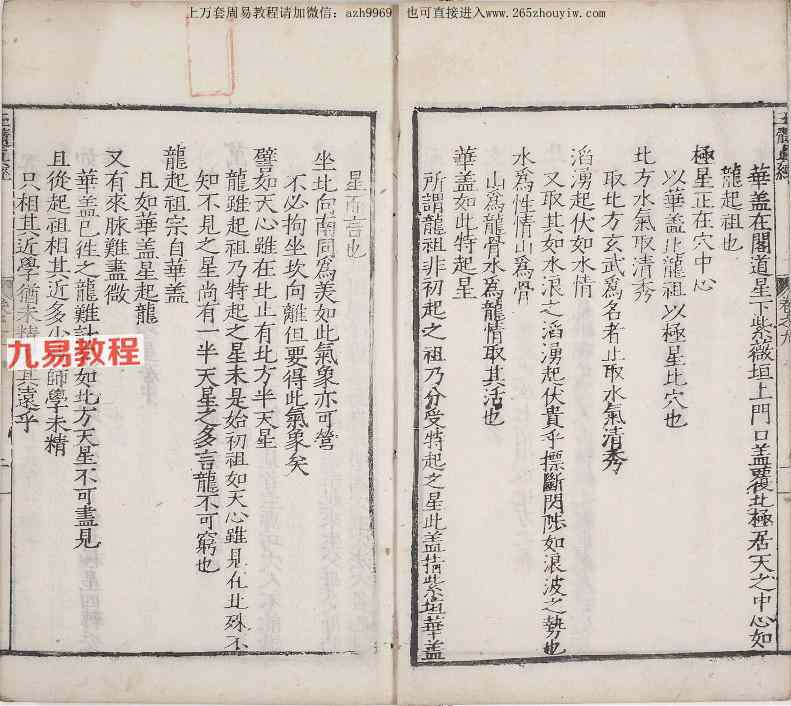 上万套周易教程请加微信：azh9969 也可直接进入www.265zhouyiw.com
華盖在閣道星下紫薇垣上門口盖覆北極居天之中心如
龍起祖也
極星正在穴中心
以華盖比龍祖以極星比穴也
北方水氣取清秀
取北方玄武為名者止取水氣清秀
滔湧起伏如水情
又取其如水浪之滔湧起伏貴乎摽斷閃陟如浪波之勢也
水為性情山為骨
山為龍骨水為龍情取其活也
華盖如此特起星
所謂龍祖非初起之祖乃分受特起之星此盖指紫垣華盖
星而言也
坐北向南同為美如此氣象亦可誉
不必拘坐坎向離但要得此氣象矣
譬如天心雖在北止有北方半天星
龍雖起祖乃特起之星未是始初祖如天心雖見在北殊不
知不見之星尚有一半天星之多言龍不可窮也
龍起祖宗自華盖
且如華盖星起龍
又有來脉難盡微
華盖已徃之龍難計如北方天星不可盡見
且從起祖相其近多少師學未精
只相其近學猶未精其遠乎
九易教程